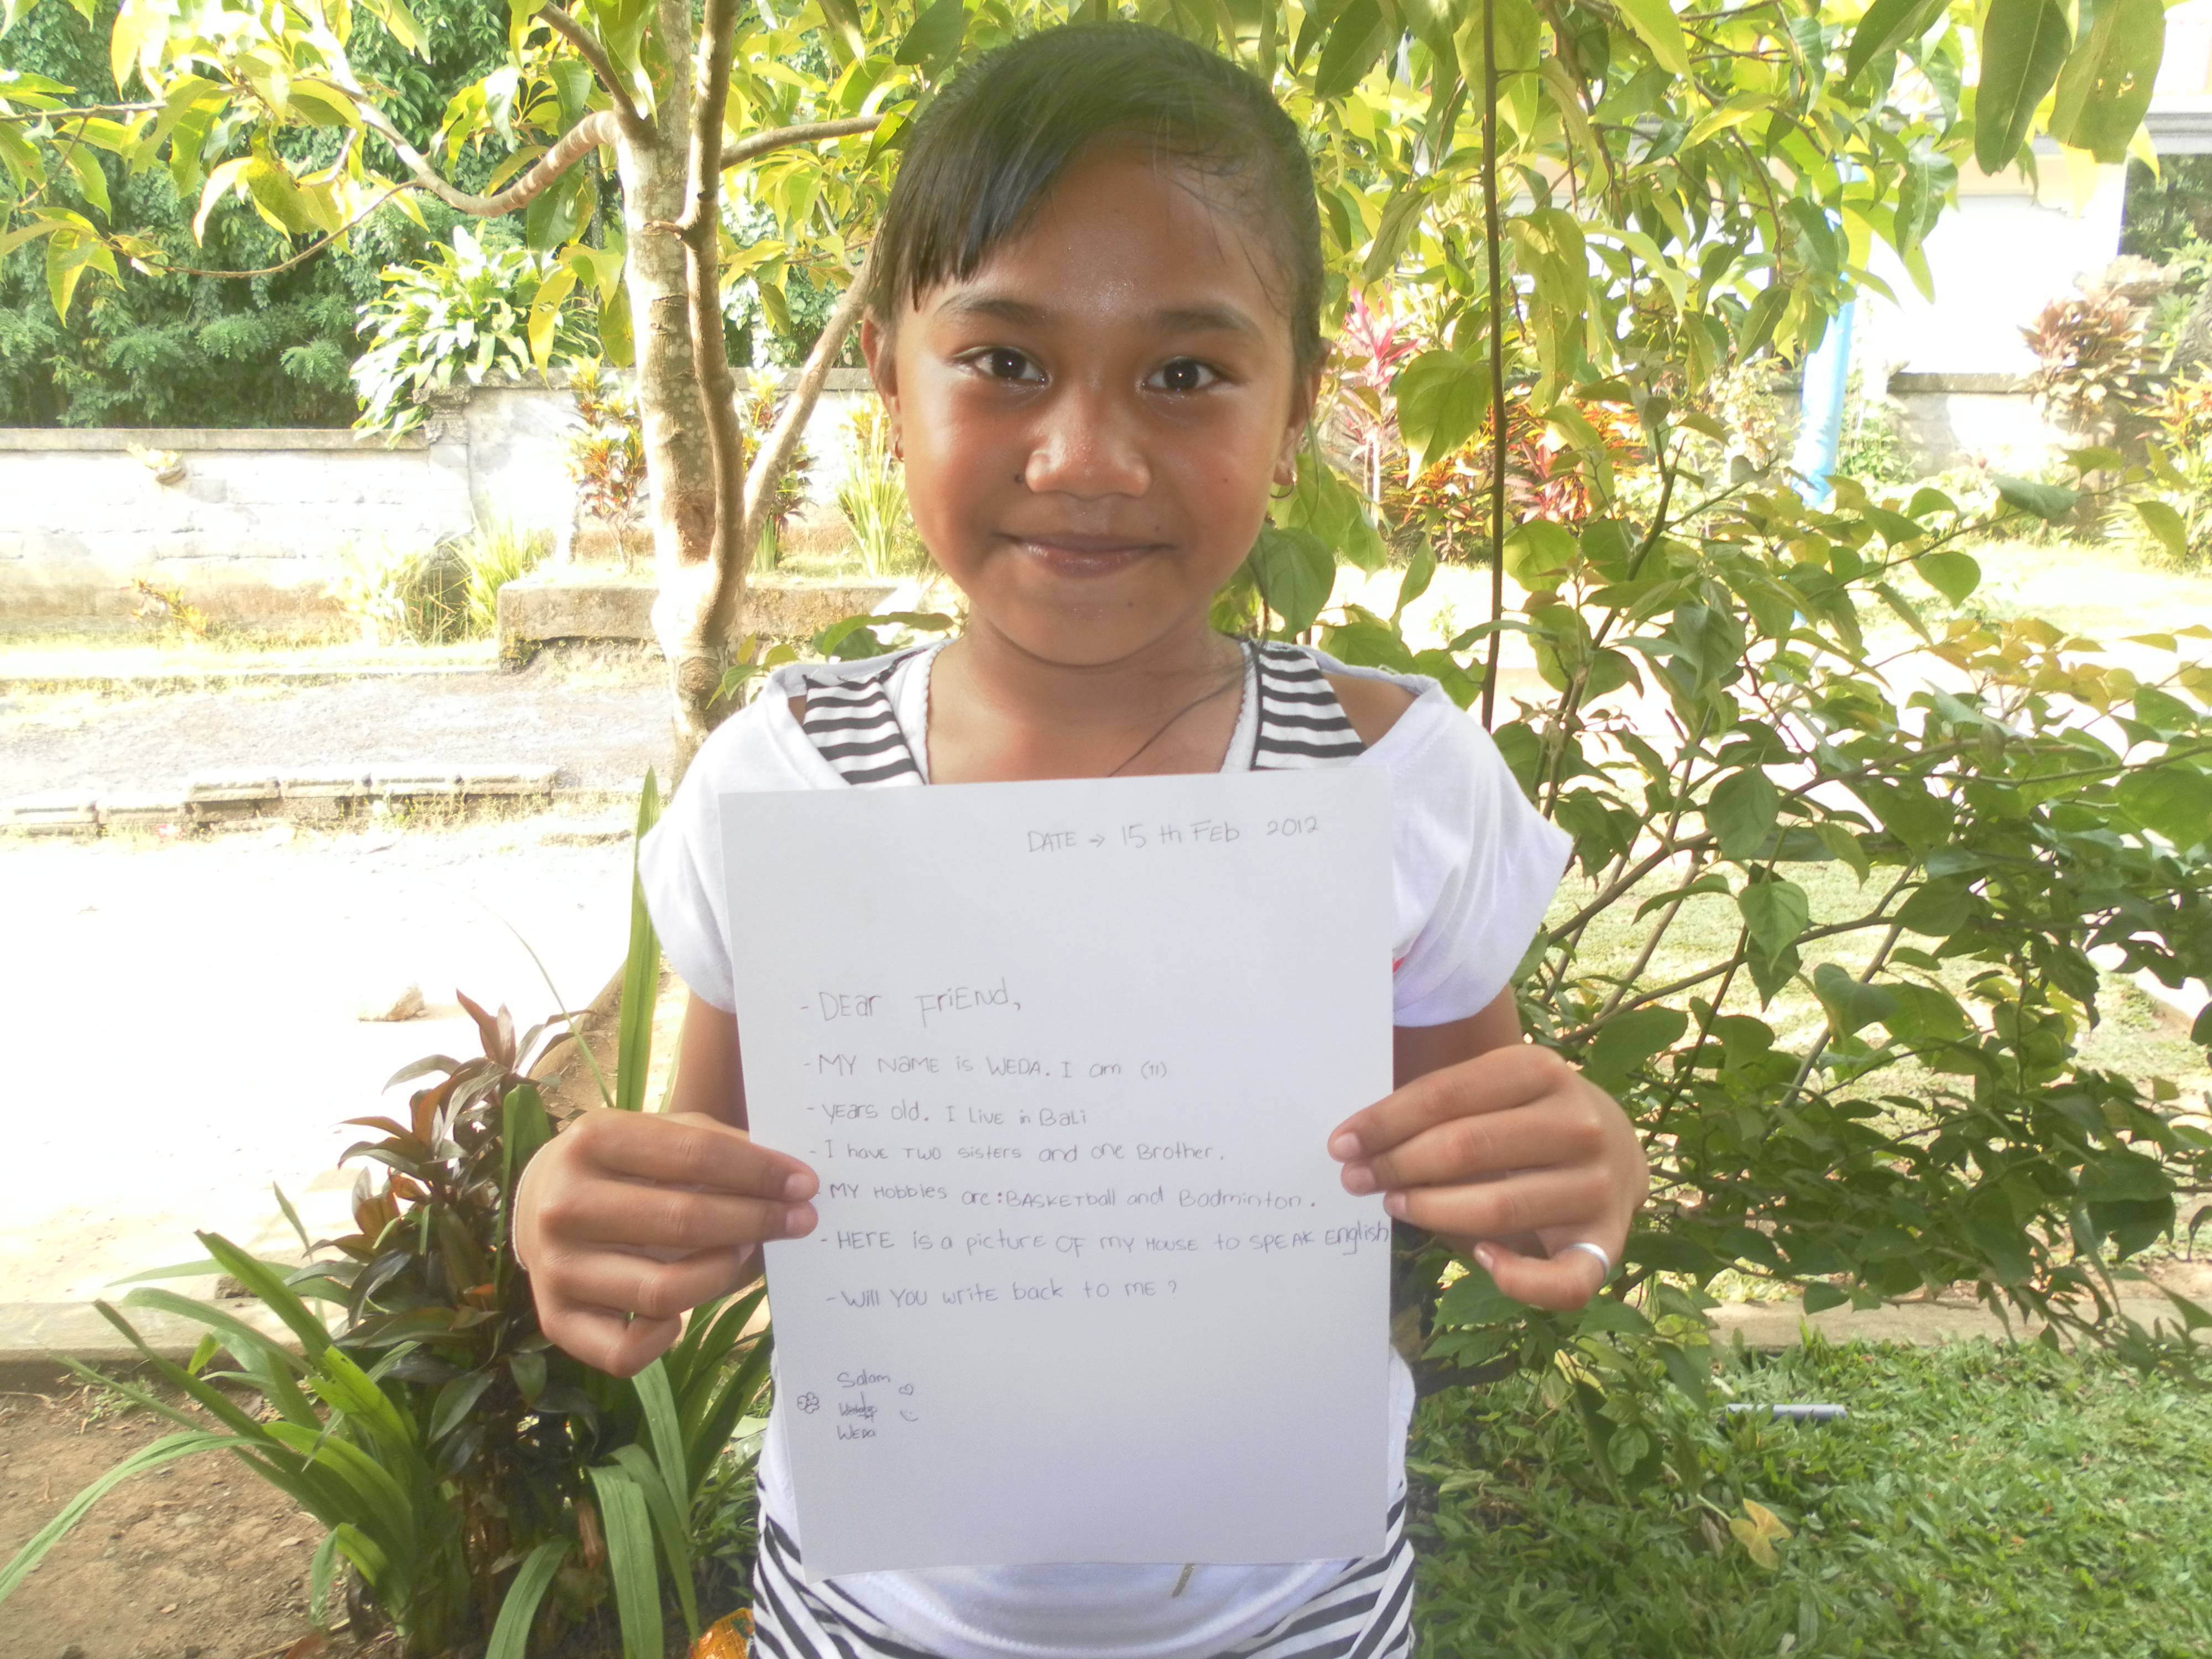 DATE → 15 th FEb 2012
- DEar FriEnd,
- MY NaME is WEDA. I am (11)
- yEars old. I LivE in BaLi
- I havE TWO sistErs and onE BrothEr.
- MY HobbiEs arE : BASKETball and Badminton.
- HErE is a picturE OF my HOUSE to SPEAK English
- Will YOU writE back to mE ?
Salam
WEDa